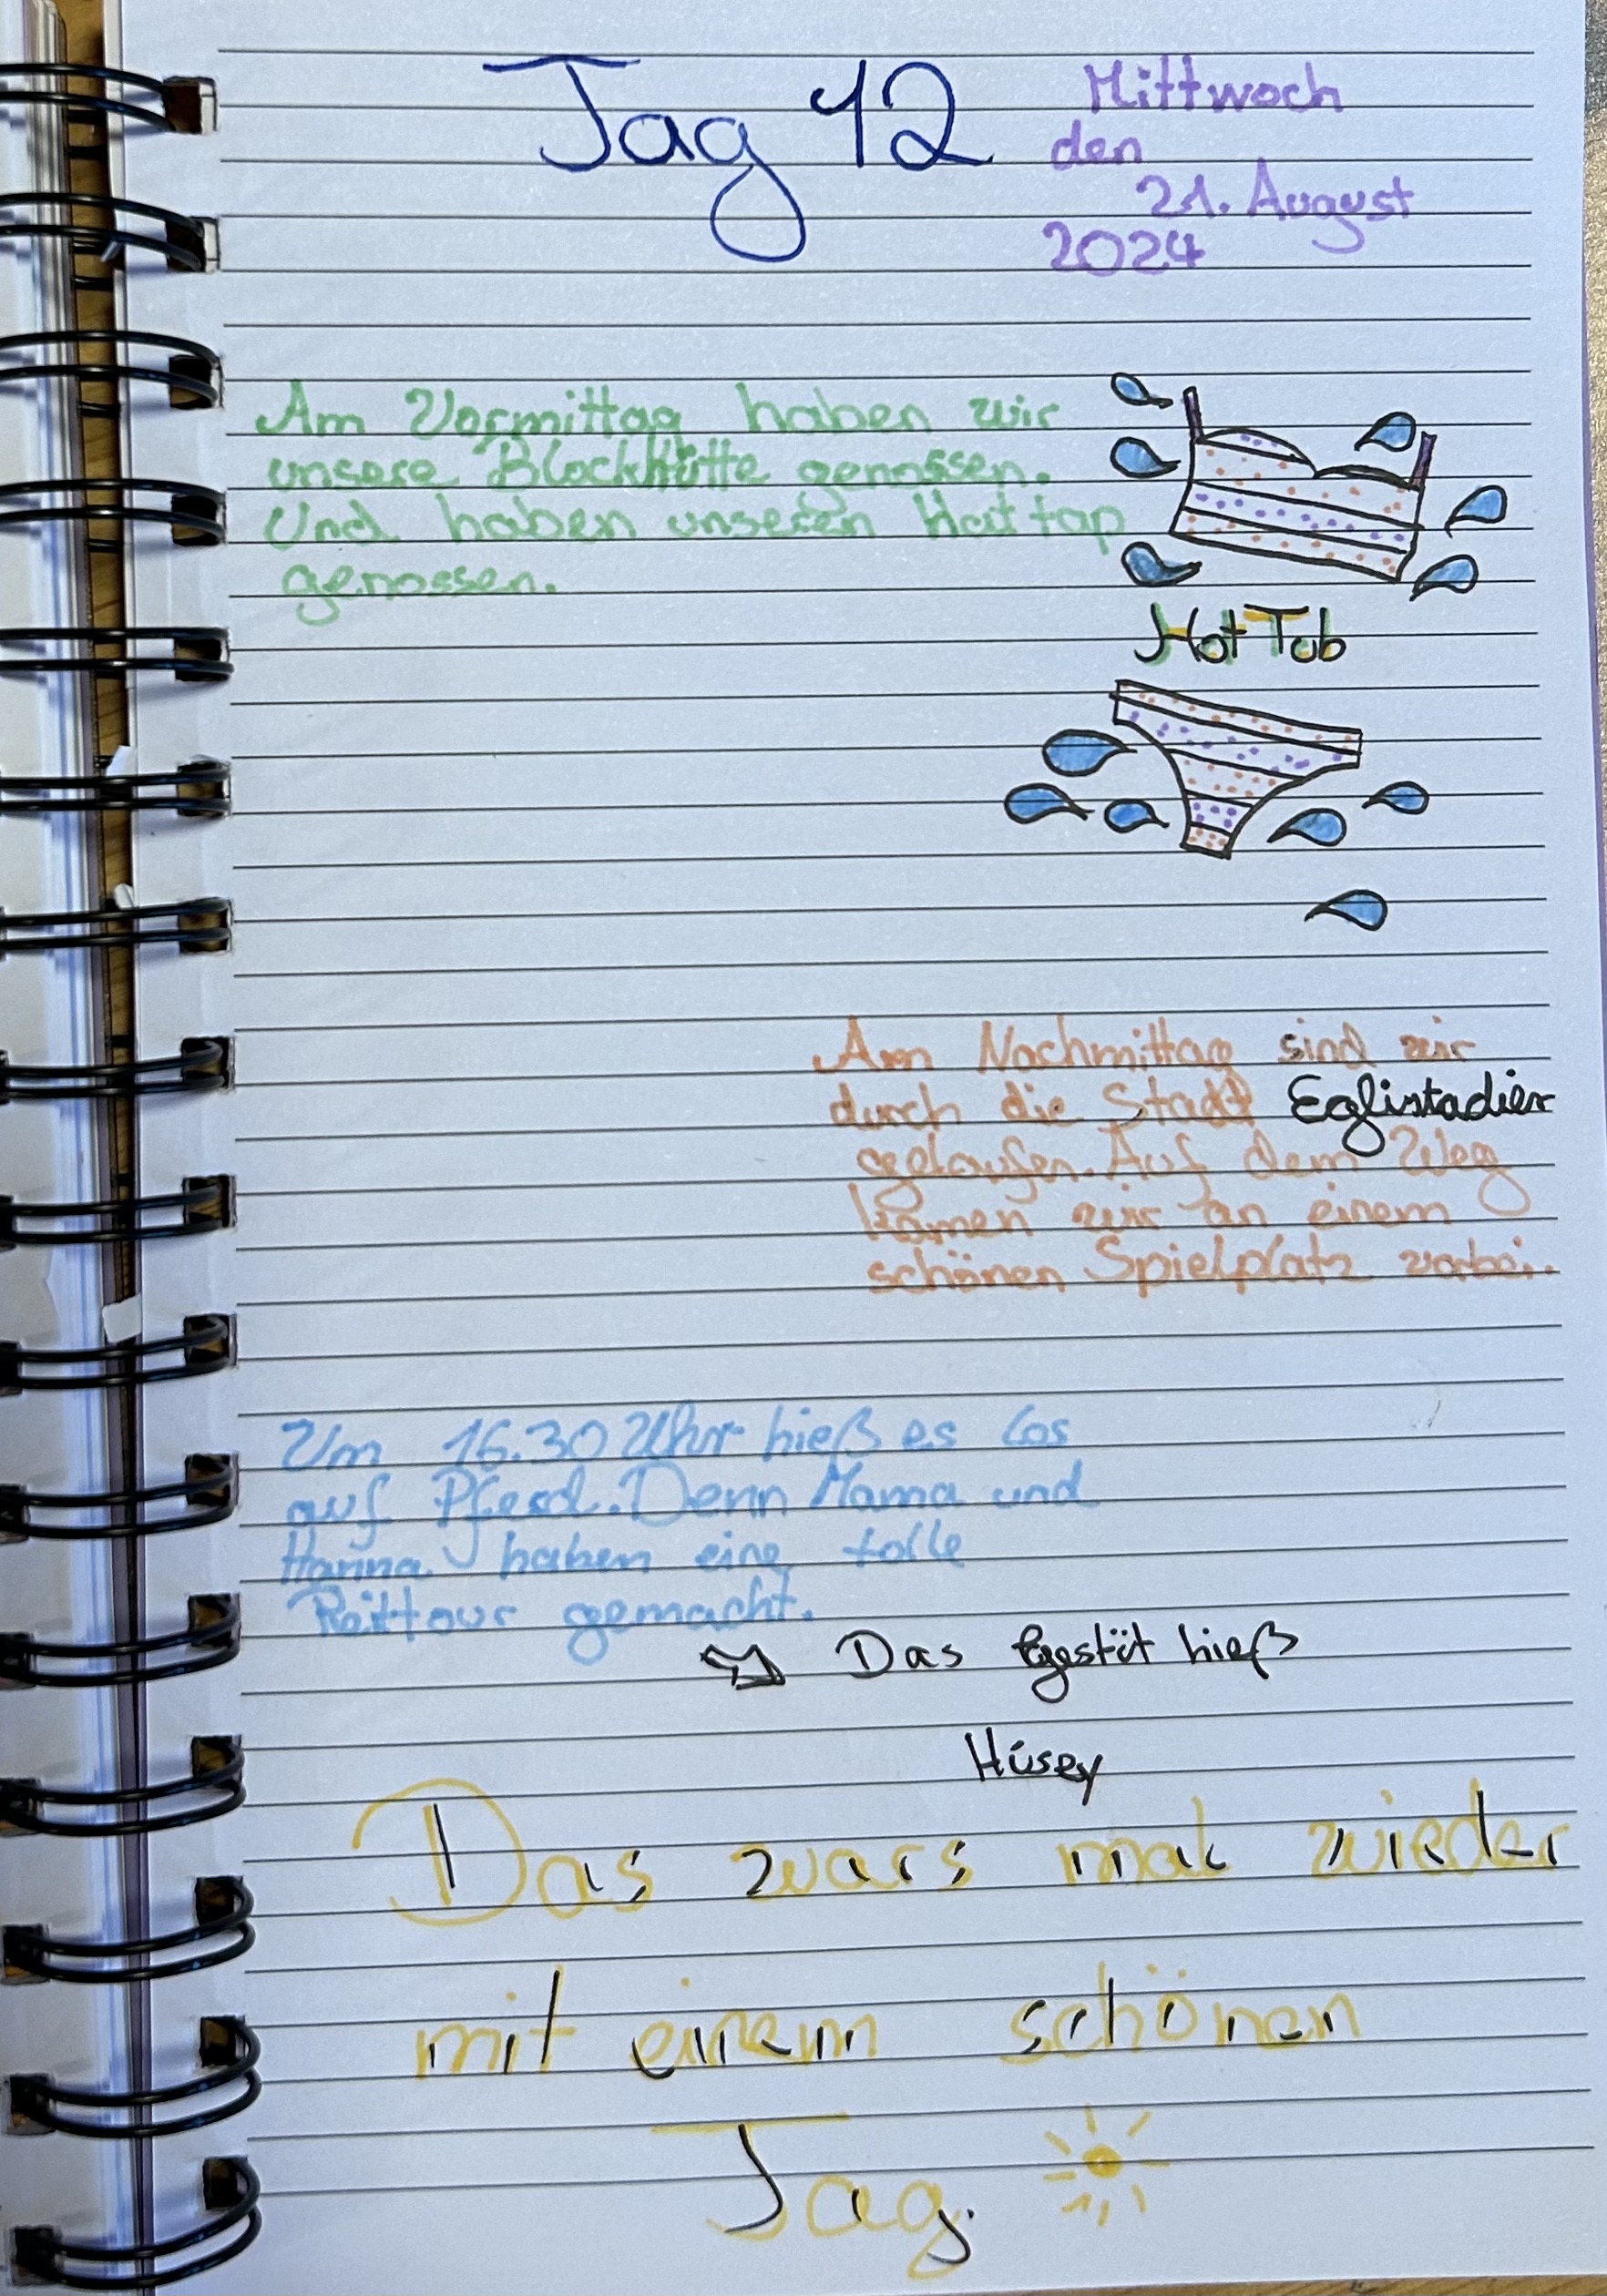 Tag 12
Mittwoch
den
21. August
2024
Am Vormittag haben wir
unsere Blockhütte genossen.
Und haben unseren Hottap
genossen.
Hot Tub
Am Nachmittag sind wir
durch die Stadt Eglistadier
gelaufen. Auf dem Weg
kamen wir an einem
schönen Spielplatz vorbei.
Um 16.30 Uhr hieß es los
auf Pferd. Denn Mama und
Hanna haben eine tolle
Reittour gemacht.
Das gestüt hieß
Húsey
Das wars mal wieder
mit einem schönen
Tag.